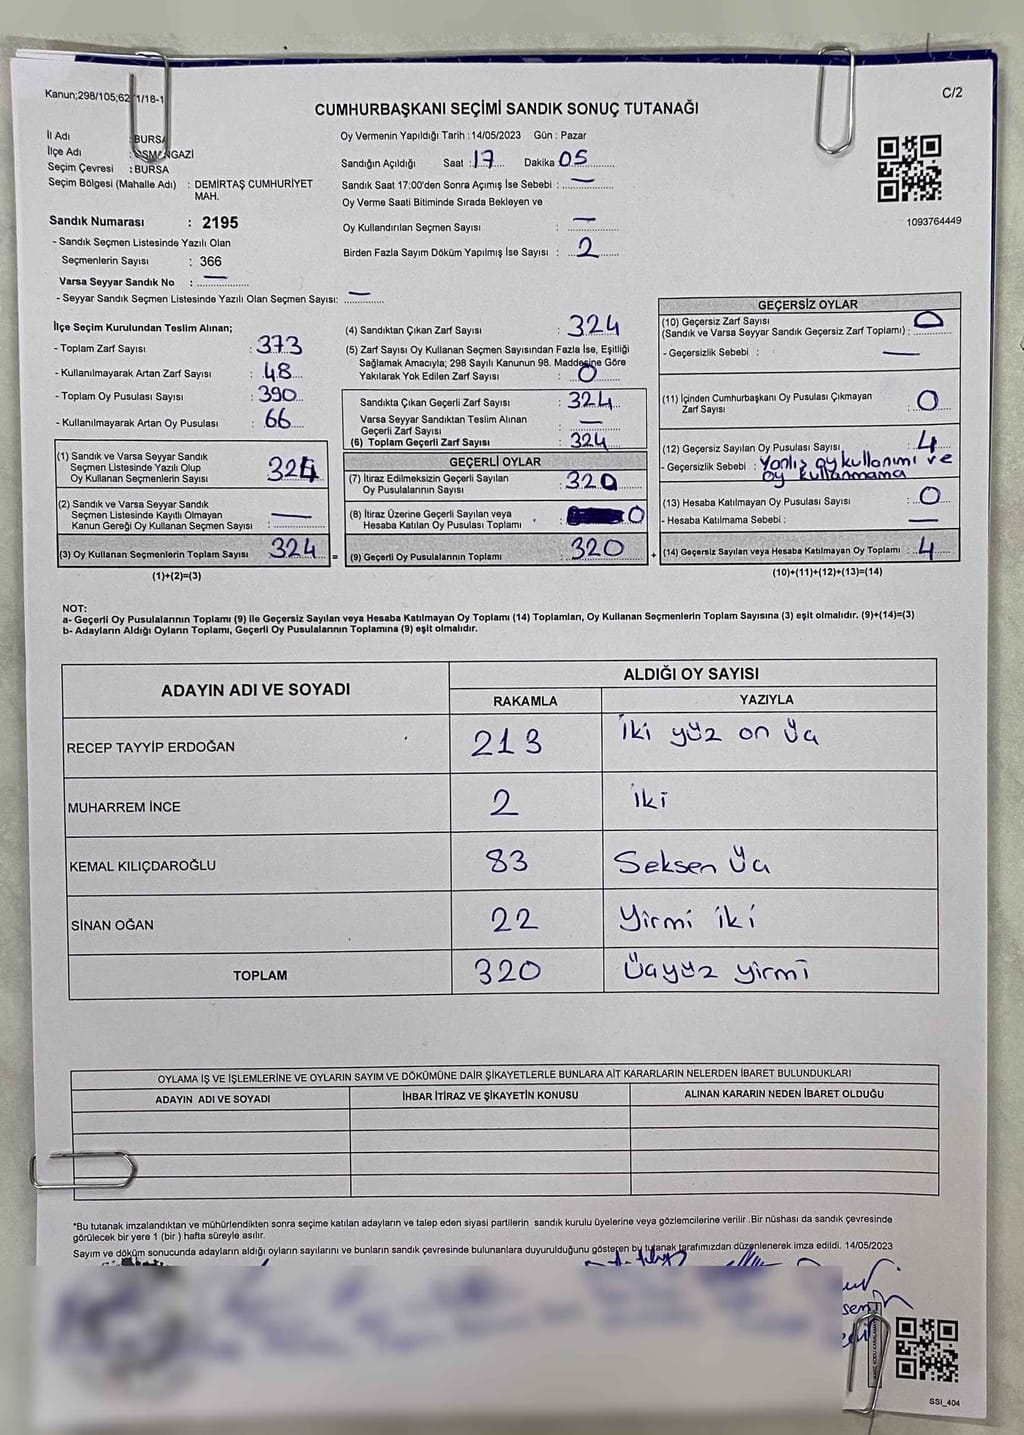 Kanun;298/105;62 1/18-1
C/2
CUMHURBAŞKANI SEÇİMİ SANDIK SONUÇ TUTANAĞI
İl Adı : BURSA
İlçe Adı : OSMANGAZİ
Seçim Çevresi : BURSA
Seçim Bölgesi (Mahalle Adı) : DEMİRTAŞ CUMHURİYET
MAH.
Sandık Numarası : 2195
- Sandık Seçmen Listesinde Yazılı Olan
Seçmenlerin Sayısı : 366
Varsa Seyyar Sandık No : —
- Seyyar Sandık Seçmen Listesinde Yazılı Olan Seçmen Sayısı: —
Oy Vermenin Yapıldığı Tarih :14/05/2023 Gün : Pazar
Sandığın Açıldığı Saat : 17 Dakika 05
Sandık Saat 17:00'den Sonra Açımış İse Sebebi : —
Oy Verme Saati Bitiminde Sırada Bekleyen ve
Oy Kullandırılan Seçmen Sayısı : —
Birden Fazla Sayım Döküm Yapılmış İse Sayısı : 2
1093764449
İlçe Seçim Kurulundan Teslim Alınan;
- Toplam Zarf Sayısı : 373
- Kullanılmayarak Artan Zarf Sayısı : 48
- Toplam Oy Pusulası Sayısı : 390
- Kullanılmayarak Artan Oy Pusulası : 66
(1) Sandık ve Varsa Seyyar Sandık
Seçmen Listesinde Yazılı Olup
Oy Kullanan Seçmenlerin Sayısı : 324
(2) Sandık ve Varsa Seyyar Sandık
Seçmen Listesinde Kayıtlı Olmayan
Kanun Gereği Oy Kullanan Seçmen Sayısı : —
(3) Oy Kullanan Seçmenlerin Toplam Sayısı : 324 =
(1)+(2)=(3)
(4) Sandıktan Çıkan Zarf Sayısı : 324
(5) Zarf Sayısı Oy Kullanan Seçmen Sayısından Fazla İse, Eşitliği
Sağlamak Amacıyla; 298 Sayılı Kanunun 98. Maddesine Göre
Yakılarak Yok Edilen Zarf Sayısı : 0
Sandıkta Çıkan Geçerli Zarf Sayısı : 324
Varsa Seyyar Sandıktan Teslim Alınan
Geçerli Zarf Sayısı : —
(6) Toplam Geçerli Zarf Sayısı : 324
GEÇERLİ OYLAR
(7) İtiraz Edilmeksizin Geçerli Sayılan
Oy Pusulalarının Sayısı : 320
(8) İtiraz Üzerine Geçerli Sayılan veya
Hesaba Katılan Oy Pusulası Toplamı : 0
(9) Geçerli Oy Pusulalarının Toplamı : 320 +
GEÇERSİZ OYLAR
(10) Geçersiz Zarf Sayısı
(Sandık ve Varsa Seyyar Sandık Geçersiz Zarf Toplamı) : 0
- Geçersizlik Sebebi : —
(11) İçinden Cumhurbaşkanı Oy Pusulası Çıkmayan
Zarf Sayısı : 0
(12) Geçersiz Sayılan Oy Pusulası Sayısı : 4
- Geçersizlik Sebebi : Yanlış oy kullanımı ve
oy kullanmama
(13) Hesaba Katılmayan Oy Pusulası Sayısı : 0
- Hesaba Katılmama Sebebi : —
(14) Geçersiz Sayılan veya Hesaba Katılmayan Oy Toplamı : 4
(10)+(11)+(12)+(13)=(14)
NOT:
a- Geçerli Oy Pusulalarının Toplamı (9) ile Geçersiz Sayılan veya Hesaba Katılmayan Oy Toplamı (14) Toplamları, Oy Kullanan Seçmenlerin Toplam Sayısına (3) eşit olmalıdır. (9)+(14)=(3)
b- Adayların Aldığı Oyların Toplamı, Geçerli Oy Pusulalarının Toplamına (9) eşit olmalıdır.
ADAYIN ADI VE SOYADI ALDIĞI OY SAYISI
RAKAMLA YAZIYLA
RECEP TAYYİP ERDOĞAN 213 İki yüz on üç
MUHARREM İNCE 2 iki
KEMAL KILIÇDAROĞLU 83 Seksen üç
SİNAN OĞAN 22 Yirmi iki
TOPLAM 320 Üçyüz yirmi
OYLAMA İŞ VE İŞLEMLERİNE VE OYLARIN SAYIM VE DÖKÜMÜNE DAİR ŞİKAYETLERLE BUNLARA AİT KARARLARIN NELERDEN İBARET BULUNDUKLARI
ADAYIN ADI VE SOYADI İHBAR İTİRAZ VE ŞİKAYETİN KONUSU ALINAN KARARIN NEDEN İBARET OLDUĞU
*Bu tutanak imzalandıktan ve mühürlendikten sonra seçime katılan adayların ve talep eden siyasi partilerin sandık kurulu üyelerine veya gözlemcilerine verilir .Bir nüshası da sandık çevresinde
görülecek bir yere 1 (bir ) hafta süreyle asılır.
Sayım ve döküm sonucunda adayların aldığı oyların sayılarını ve bunların sandık çevresinde bulunanlara duyurulduğunu gösteren bu tutanak tarafımızdan düzenlenerek imza edildi. 14/05/2023
SSI_404